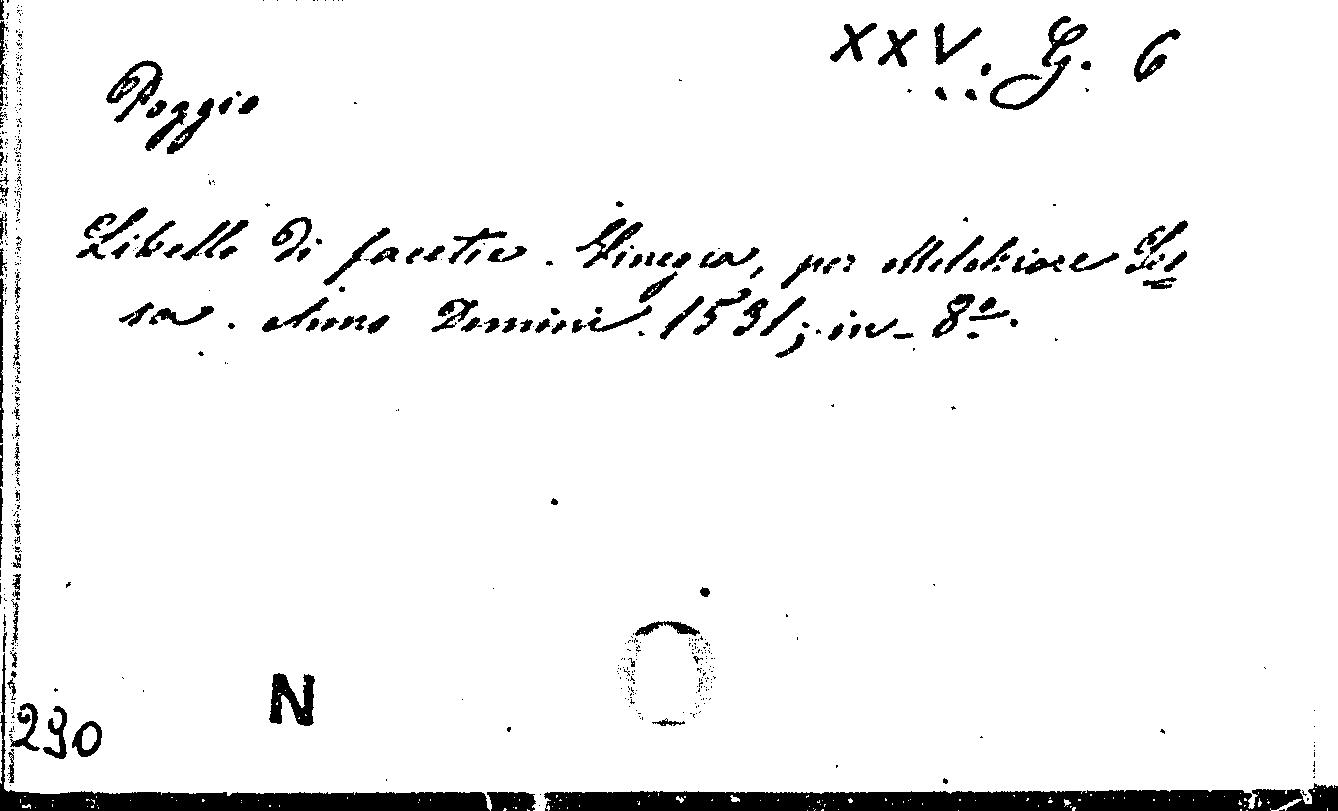 XXV. G. 6
Poggio
Libello di facetie. Vinegia, per Melchiore Ses=
sa. Anno Domini. 1531; in-8º.
N
290